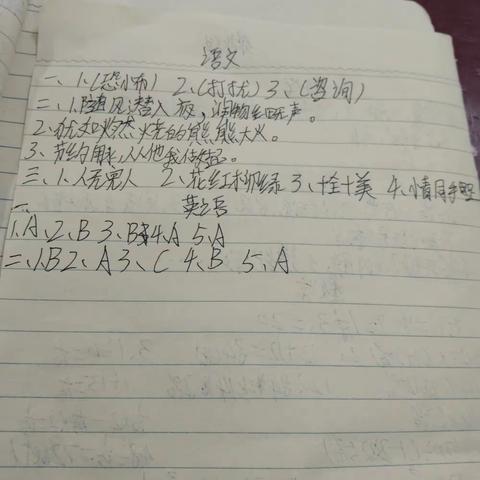 语文
一、1、(恐怖) 2、(打扰) 3、(咨询)
二、1、随风潜入夜，润物细无声。
2、犹如燃烧的熊熊大火。
3、节约用水，人人他我传
三、1、人无 2、花红柳绿 3、十全十美 4、情同手足
英语
一、
1、A、2、B 3、B 4、A 5、A
二、1、B 2、A 3、C 4、B 5、A